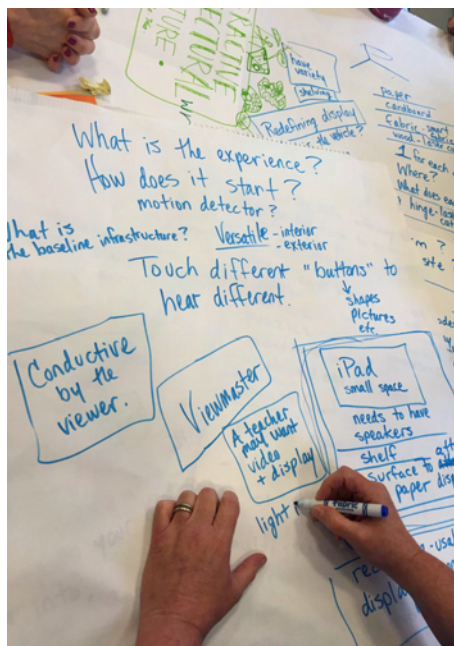 ERACTIVE
ECTURAL
TURE.
have
variety
shelving
Redefining display
the vehicle?
paper
cardboard
fabric - smart
wood - laser
1 for each
Where?
What does
hinge - las
What is the experience?
How does it start?
motion detector?
What is
the baseline infrastructure?
Versatile - interior
- exterior
Touch different "buttons" to
hear different.
shapes
pictures
etc.
Conductive
by the
viewer.
Viewmaster
A teacher
may want
video
+ display
light
iPad
small space
needs to have
speakers
shelf
surface to
paper disp
site?
displa